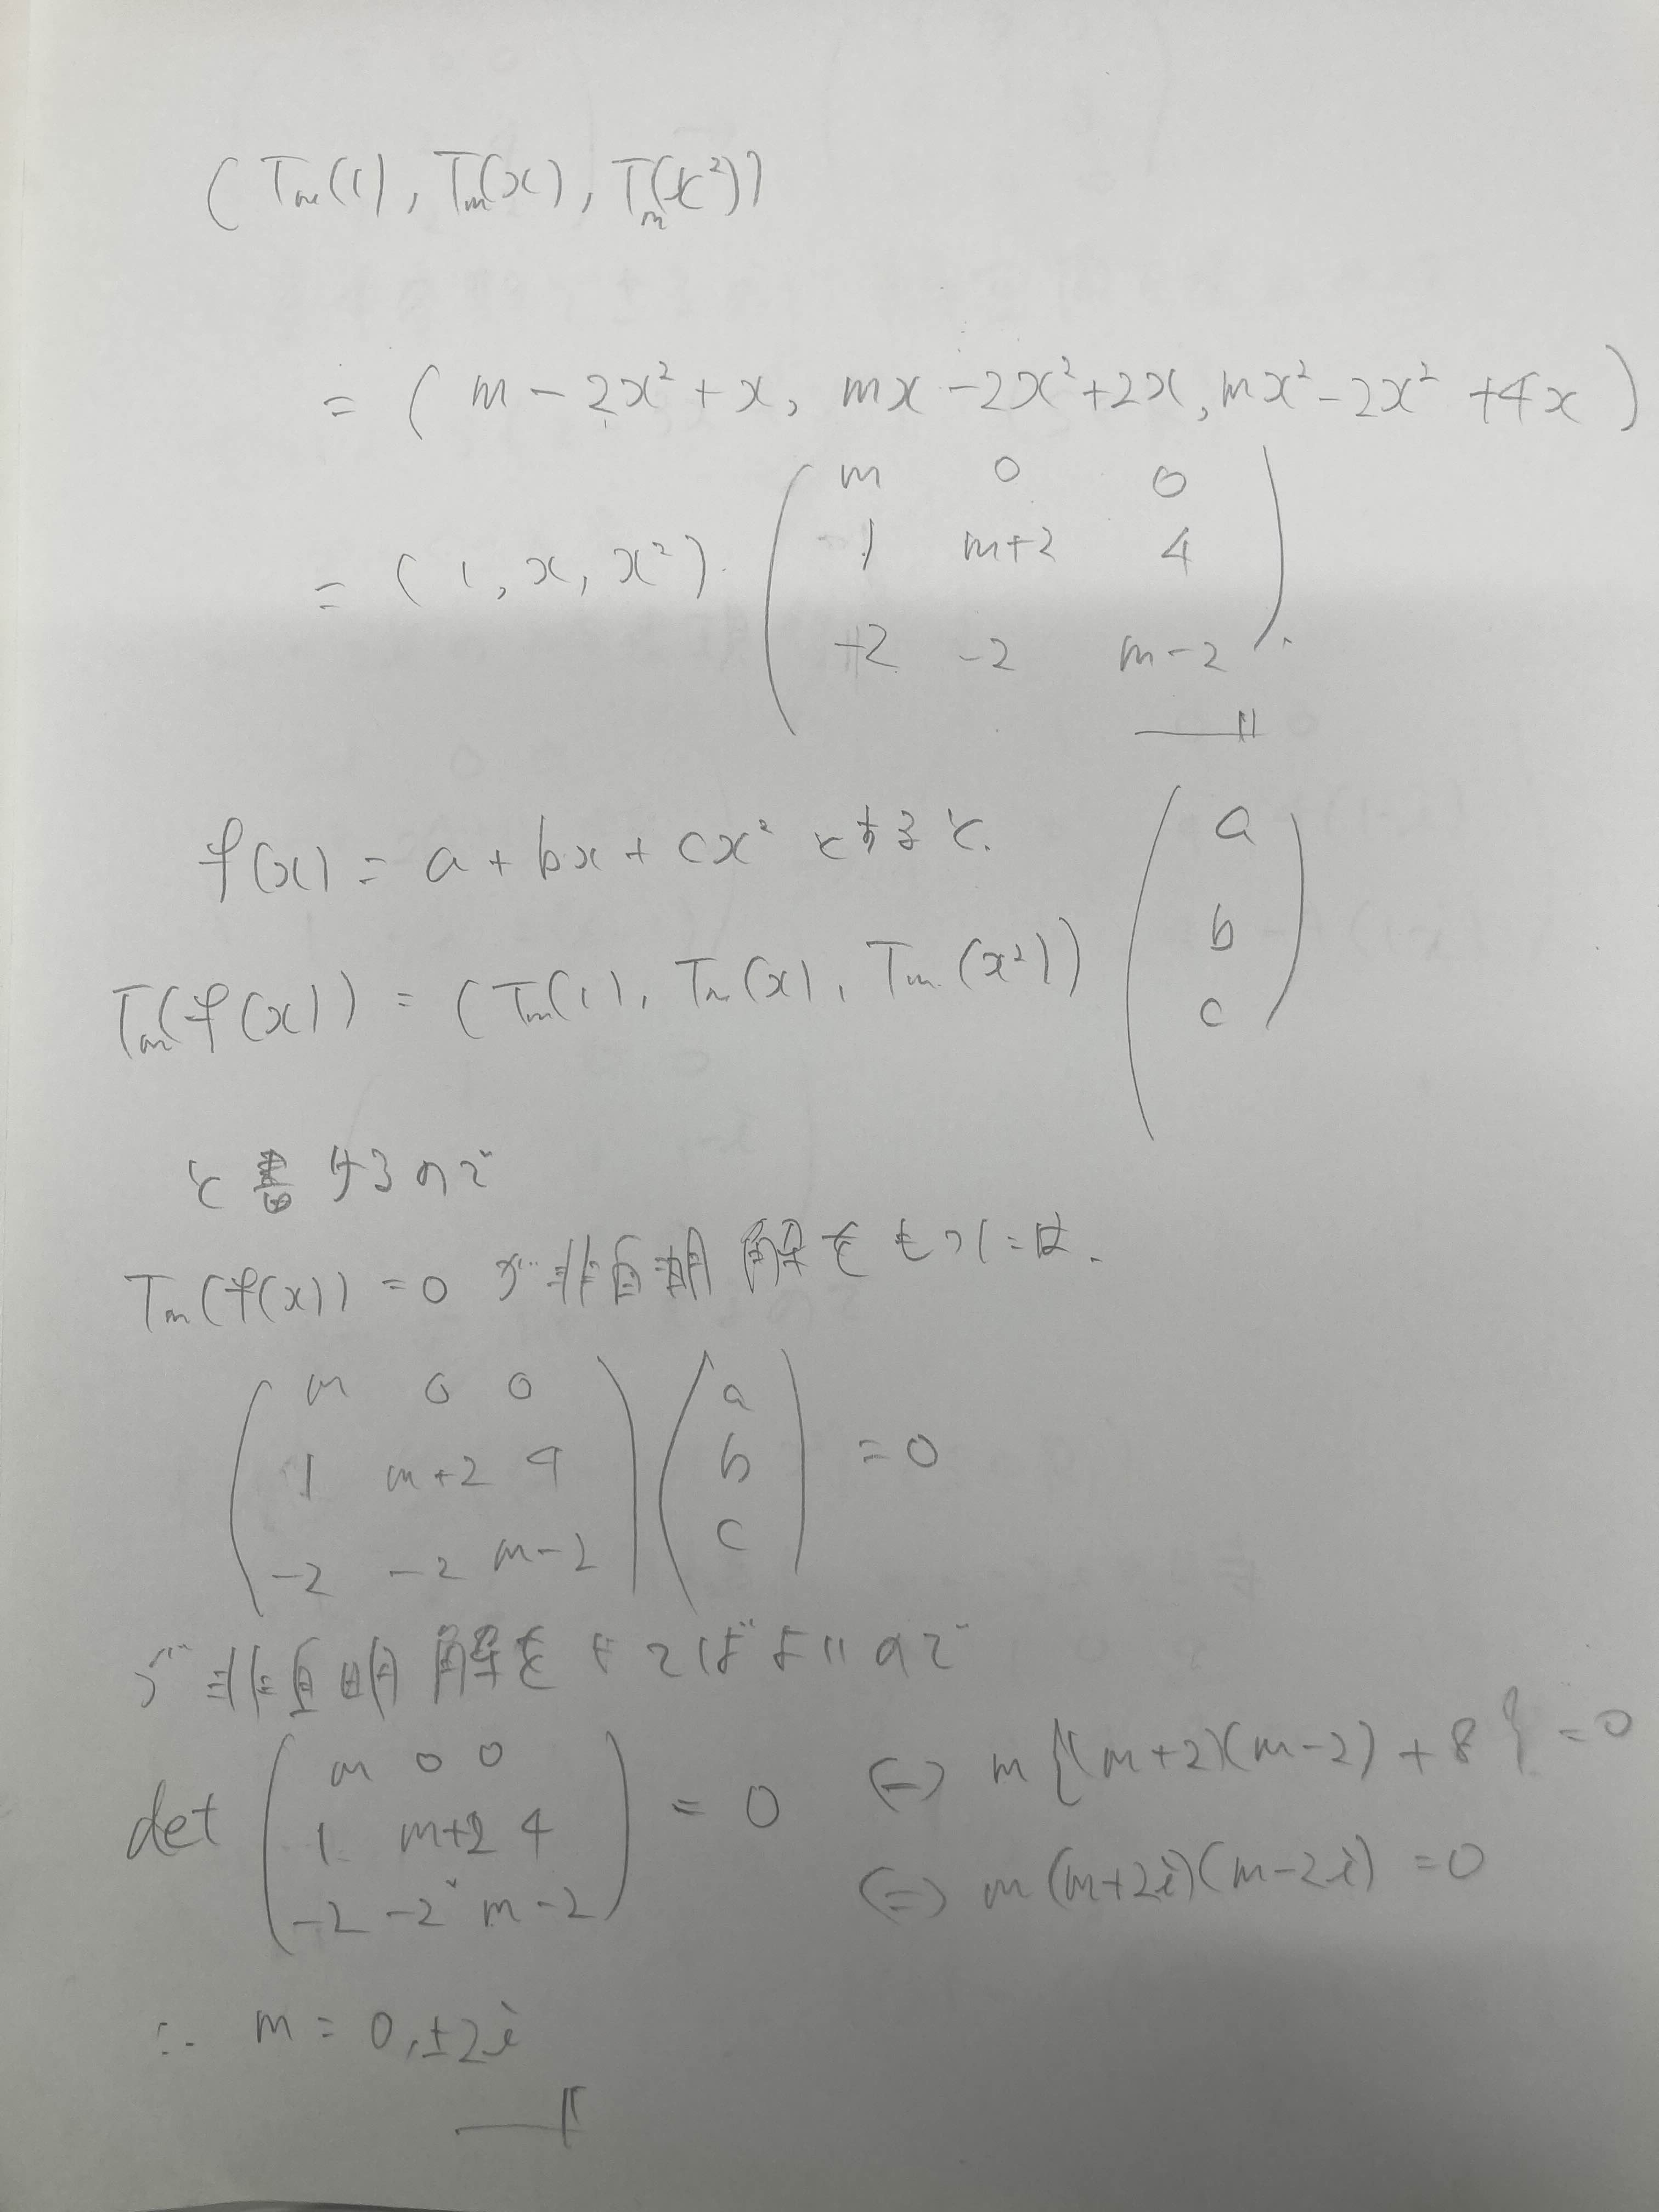 (Tm(1), Tm(x), Tm(x²))
= ( m - 2x² + x, mx - 2x² + 2x, mx² - 2x² + 4x )
= (1, x, x²).
m 0 0
1 m+2 4
-2 -2 m-2
f(x) = a + bx + cx² とすると.
Tm(f(x)) = (Tm(1), Tm(x), Tm(x²))
a
b
c
と書けるので
Tm(f(x)) = 0 が非自明解をもつには.
m 0 0
1 m+2 4
-2 -2 m-2
a
b
c
= 0
が非自明解をもてばよいので
det
m 0 0
1 m+2 4
-2 -2 m-2
= 0 ⇔ m{(m+2)(m-2) + 8} = 0
⇔ m(m+2i)(m-2i) = 0
∴ m = 0, ±2i